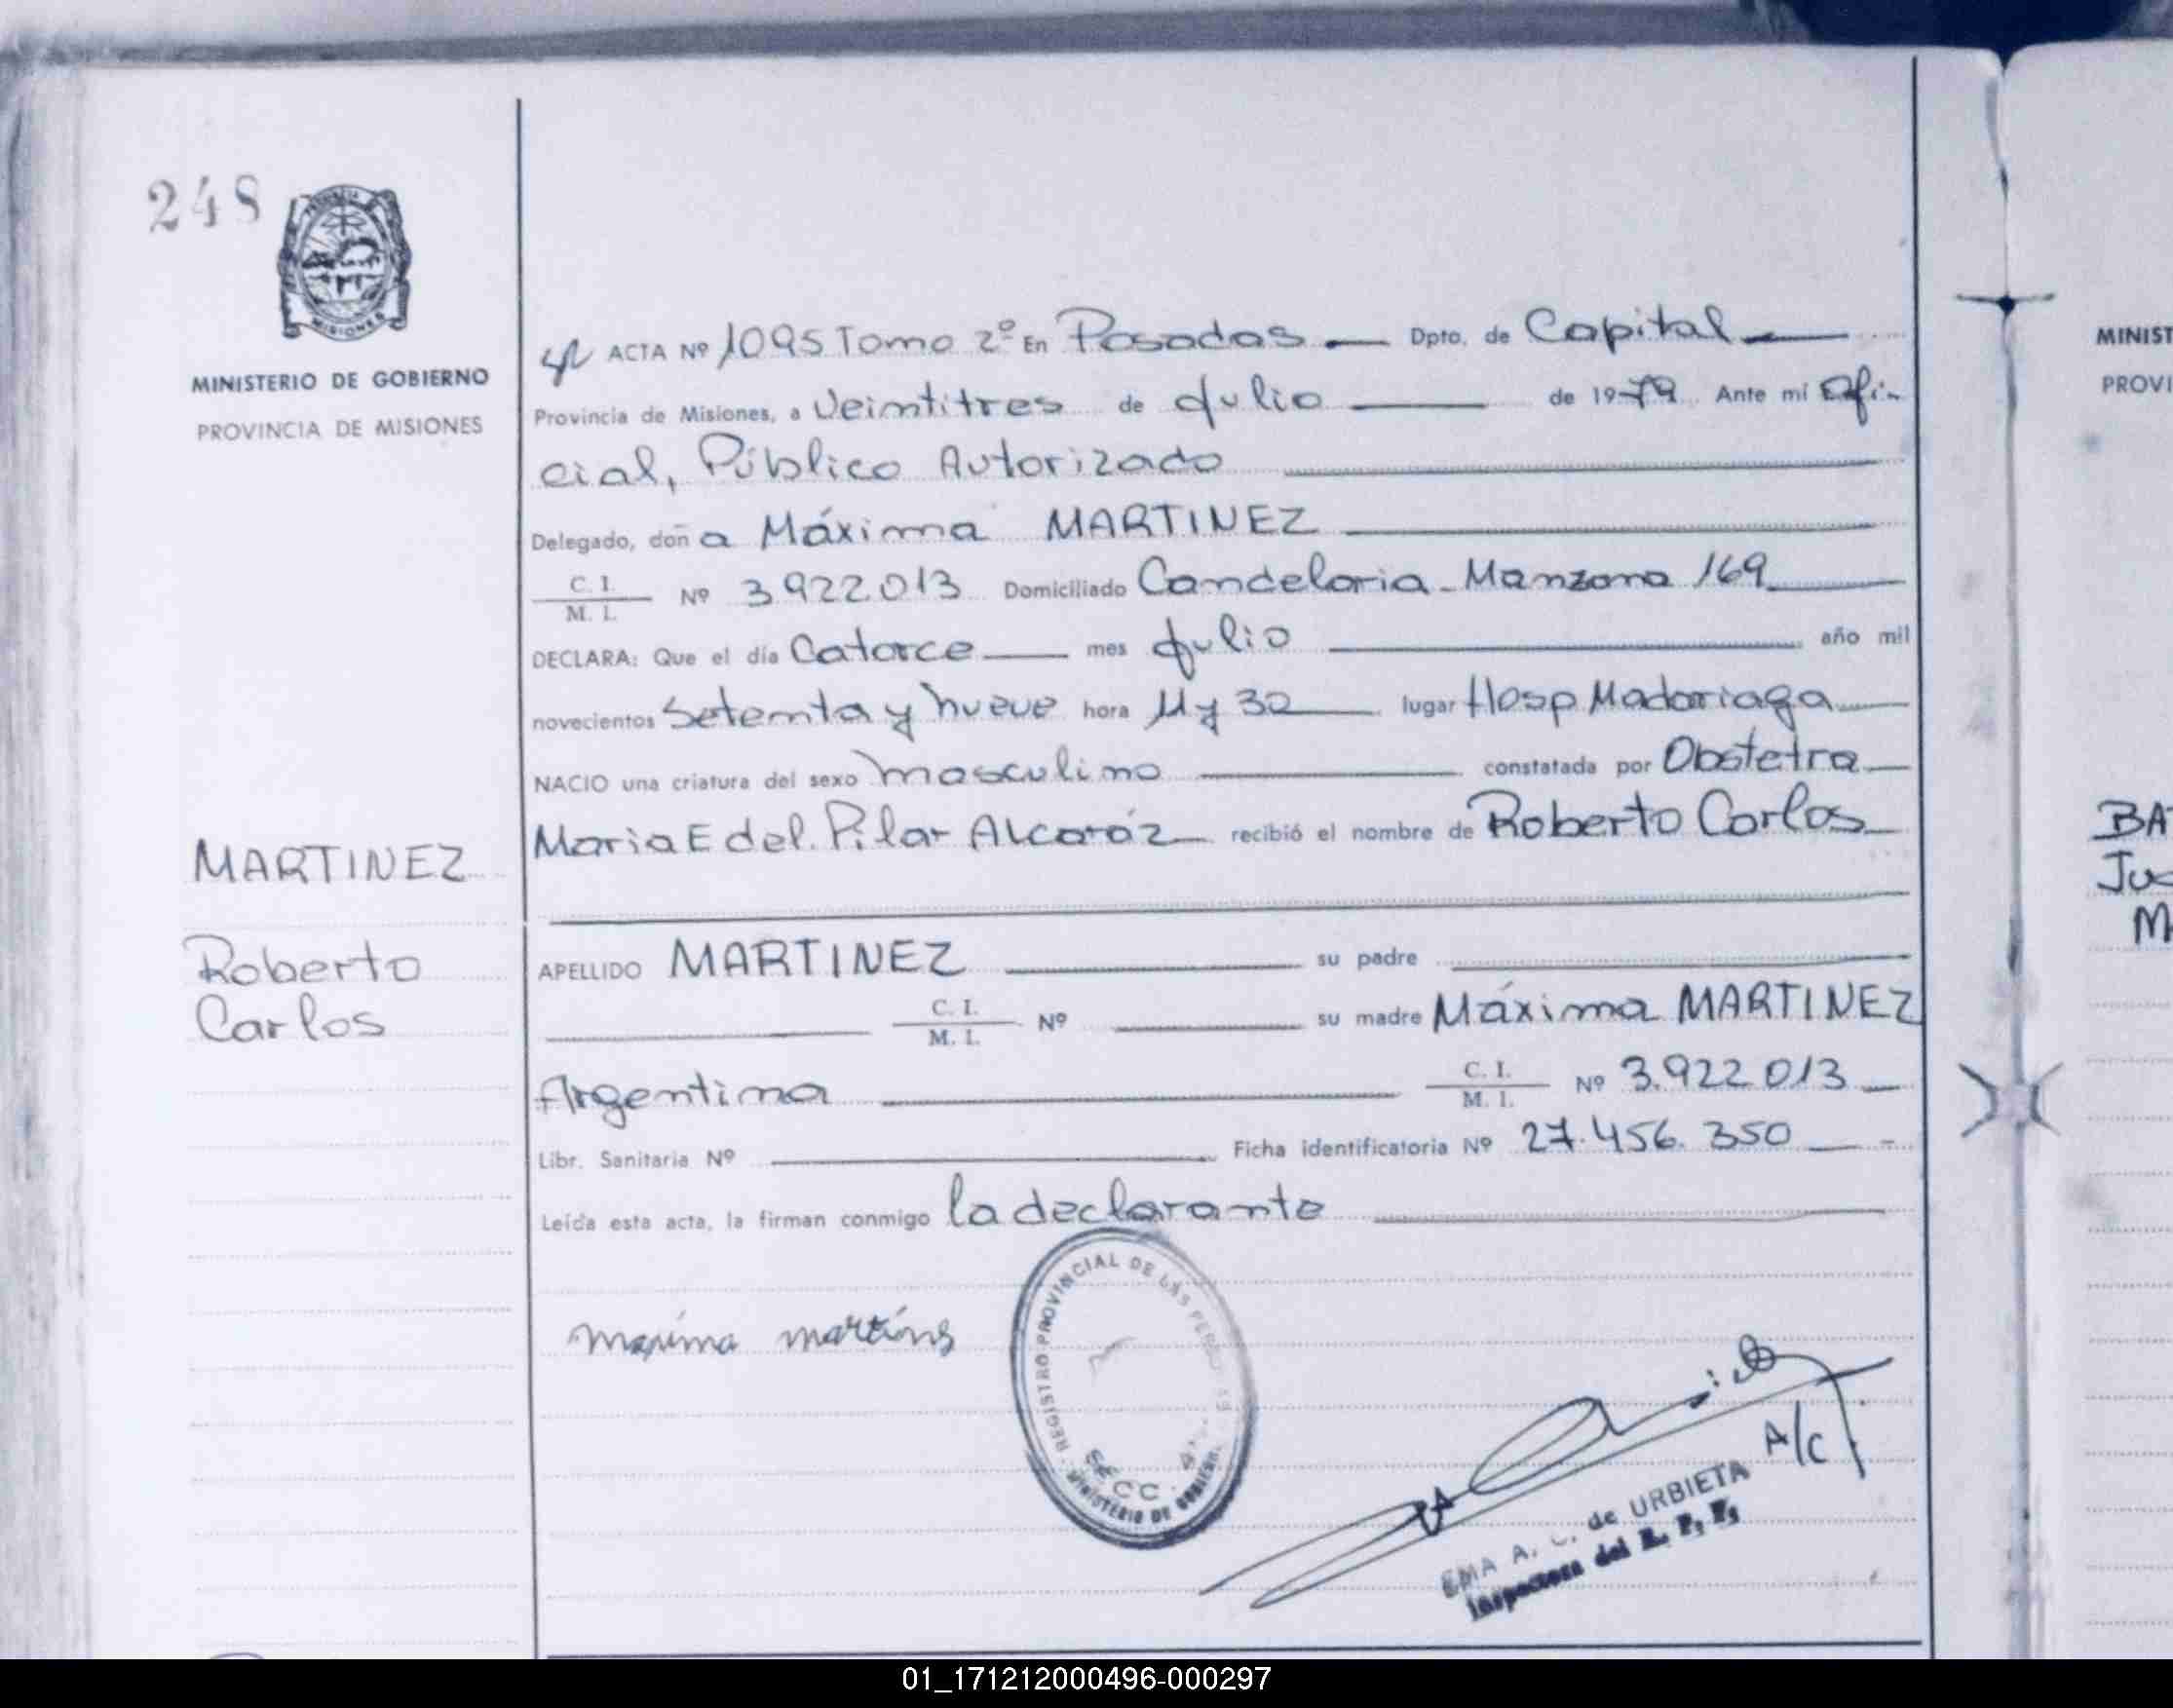 248
MISIONES
MINISTERIO DE GOBIERNO
PROVINCIA DE MISIONES
ACTA Nº 1095 Tomo 2º En Posadas Dpto. de Capital
Provincia de Misiones, a Veintitres de Julio de 1979. Ante mí Ofi-
cial, Público Autorizado
Delegado, doña Máxima MARTINEZ
C. I.
M. I. Nº 3.922.013 Domiciliado Candelaria - Manzana 169
DECLARA: Que el día Catorce mes Julio año mil
novecientos Setenta y nueve hora 11 y 32 lugar Hosp Madariaga
NACIO una criatura del sexo masculino constatada por Obstetra
Maria E del. Pilar Alcaráz recibió el nombre de Roberto Carlos
MARTINEZ
Roberto
Carlos
APELLIDO MARTINEZ su padre
C. I.
M. I. Nº su madre Máxima MARTINEZ
Argentina C. I.
M. I. Nº 3.922.013
Libr. Sanitaria Nº Ficha identificatoria Nº 27.456.350
Leída esta acta, la firman conmigo la declarante
REGISTRO PROVINCIAL DE LAS PERSONAS
SECC.
MINISTERIO DE GOBIERNO
A/C
EMA A. de URBIETA
Inspectora del R. P. P.
MINIST
PROVI
BA
Ju
M
01_171212000496-000297